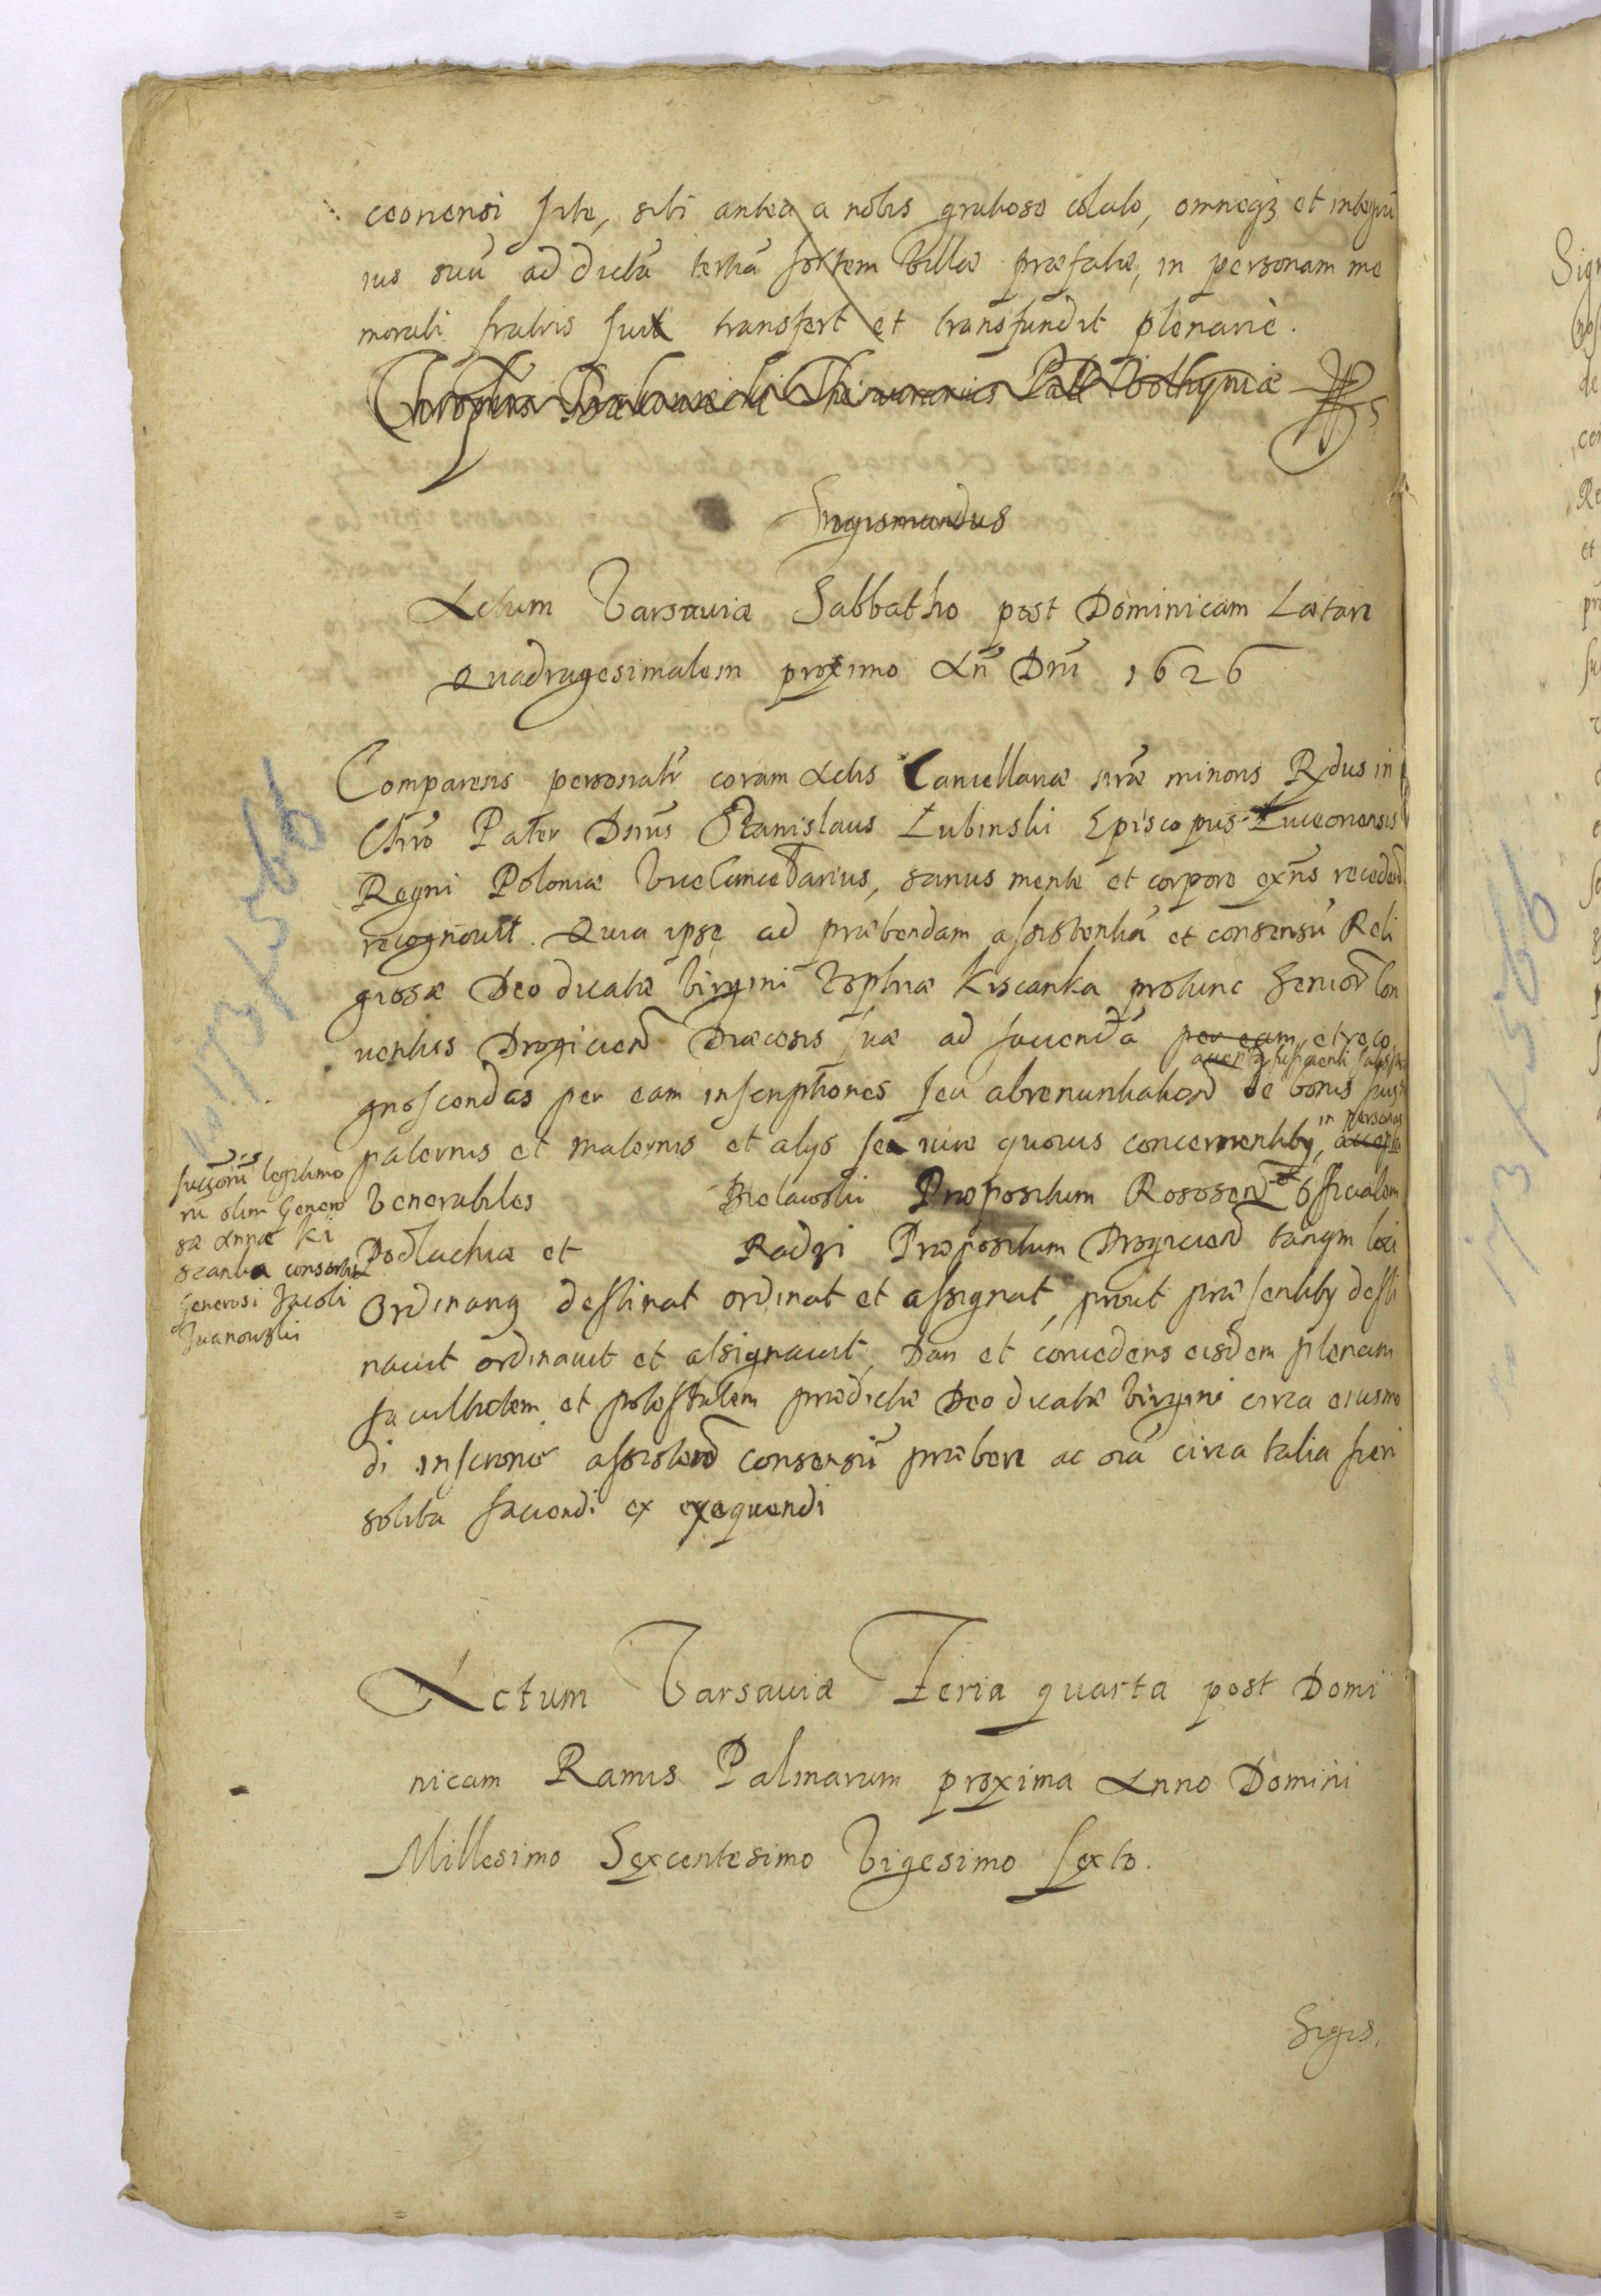 ceoriensi site, sibi antea a nobis gratiose collato, omneqz et integrũ
ius suũ ad dictã tertiã sortem Villæ præfatæ, in personam me
morati fratris sui transfert et transfundit plenariè.
Sigismundus
Actum Varsaviæ Sabbatho post Dominicam Lætare
Quadragesimalem proximo An̄ Dnī 1626
Comparens personalr̃ coram Actis Cancellariæ nr̃æ minoris Rd̄us in
Chr̃o Pater Dn̄us Stanislaus Łubinski Episcopus Luceoriensis
Regni Poloniæ Vicecancellarius, sanus mente et corpore exn̄s recedend
recognouit. Quia ipse ad præbendam assistentiã et consensũ Reli
giosæ Deo dicatæ Virgini Zophiæ Kiscanka protunc Senior Con
uentus Drogicien Diæcesis suæ ad faciendã per eam, et reco
gnoscendas per eam inscriptiones seu abrenuntiation de bonis suis
paternis et maternis et alys se iure quouis concernentiby, in personas
Venerabiles Bielawski Præpositum Rososen et Officialem
Podlachiæ et Radzi Præpositum Drogicien tanqm loci
Ordinariu destinat ordinat et assignat, prout præsentiby desti
nauit ordinauit et assignauit, Dan et concedens eisdem plenam
facultatem et potestatem prædictæ Deo dicatæ Virgini circa eiusmo
di inscrone assistend consensũ præbere ac oīa circa talia fieri
solita faciendi et exequendi
successorũ legitimo
rũ olim Genero
sæ Annæ Ki
scanka consortis
Generosi Jacobi
Iwanowski
Actum Varsauiæ Feria quarta post Domi
nicam Ramis Palmarum proxima Anno Domini
Millesimo Sexcentesimo Vigesimo sexto.
Sigis.